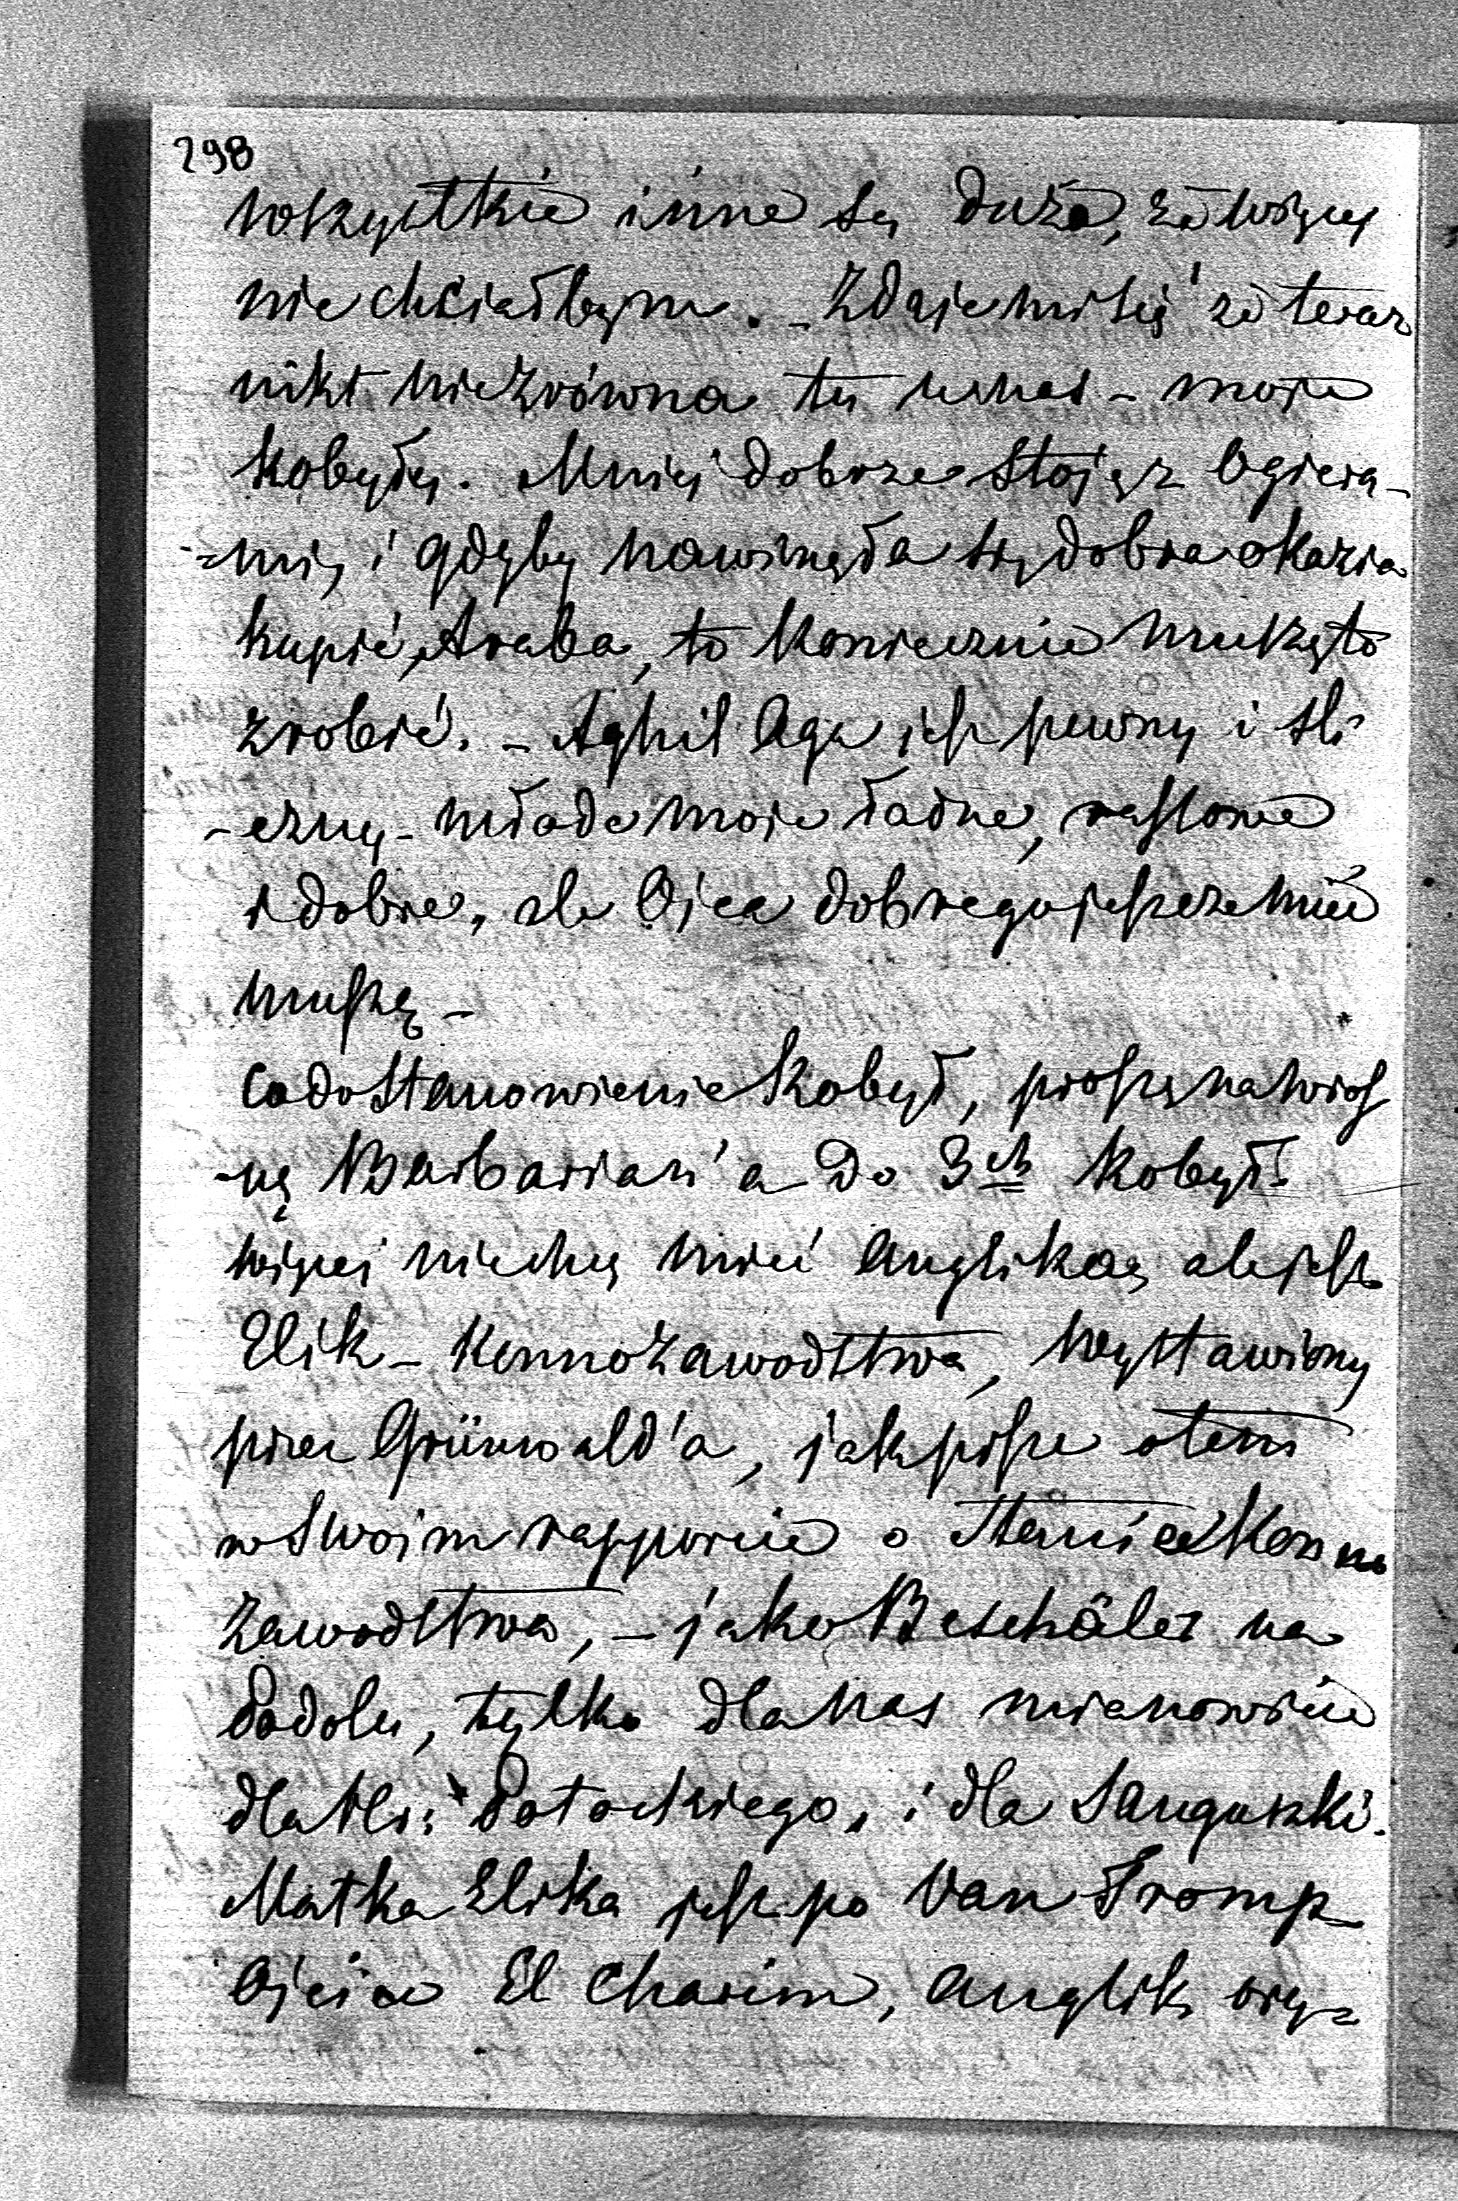 298
wszystkie inne są duże, że więcej
nie chciałbym. – Zdaje mi się że teraz
nikt niezrówna tu u nas – moje
kobyły. Mniej dobrze stoję z Ogiera-
-mi, i gdyby nawinęła się dobra okazia
kupić Araba, to koniecznie muszę to
zrobić. – Aghil Aga jest pewny i śli
-czny – młode moje ładne, rosłe
i dobre, ale Ojca dobrego jeszcze mieć
muszę –
Co do Stanowienie kobył, proszę na wios
-nę Barbarian'a do 3ch kobył
więcej niechcę mieć Anglików ale jest
Elik – Konnozawodstwa, wystawiony
przez Grünwald'a, jak pisze o tem
w Swoim rapporcie o Stanie Konno
zawodstwa, – jako Beschäler na
Podolu, tylko dla nas mianowicie
dla Potockiego, i dla Sanguszki.
Matka Elika jest po Van Tromp
Ojciec El Chasim, Anglik ory=